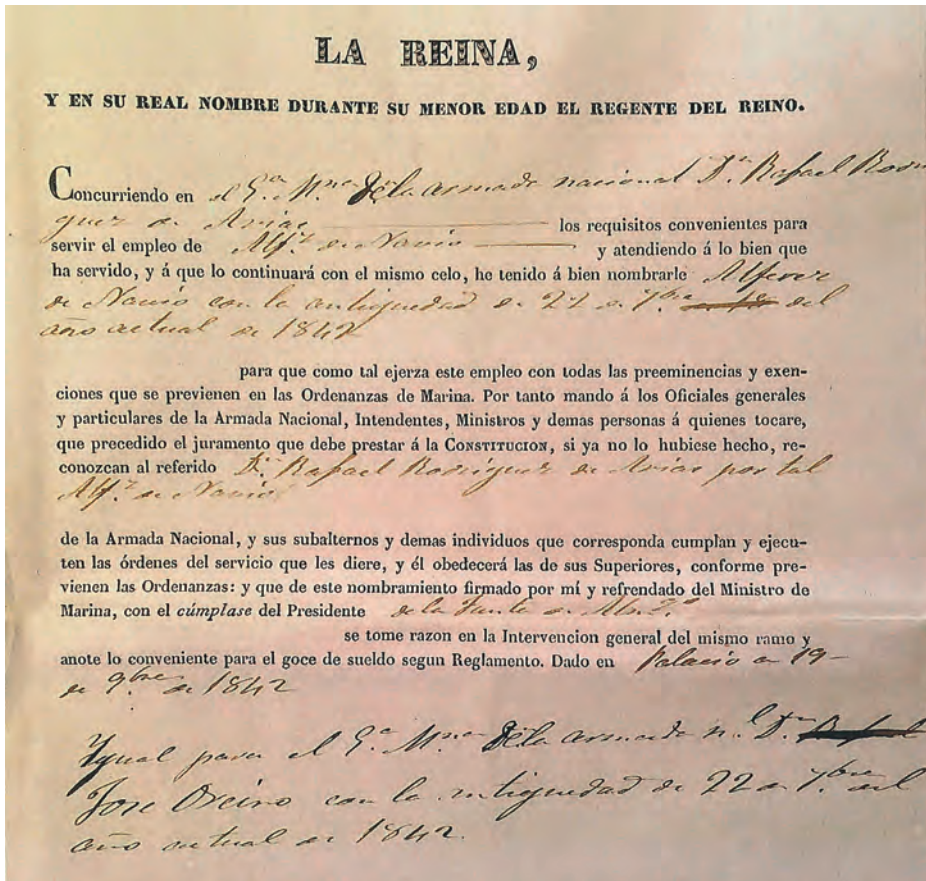 LA REINA,
Y EN SU REAL NOMBRE DURANTE SU MENOR EDAD EL REGENTE DEL REINO.
Concurriendo en el G.ª M.na De la armada nacional D.n Rafael Rodri
guez de Arias los requisitos convenientes para
servir el empleo de Alf.z de Navio y atendiendo á lo bien que
ha servido, y á que lo continuará con el mismo celo, he tenido á bien nombrarle Alferez
de Navio con la antiguedad de 22 de 7.bre del
año actual de 1842
para que como tal ejerza este empleo con todas las preeminencias y exen-
ciones que se previenen en las Ordenanzas de Marina. Por tanto mando á los Oficiales generales
y particulares de la Armada Nacional, Intendentes, Ministros y demas personas á quienes tocare,
que precedido el juramento que debe prestar á la CONSTITUCION, si ya no lo hubiese hecho, re-
conozcan al referido D.n Rafael Rodriguez de Arias por tal
Alf.z de Navio
de la Armada Nacional, y sus subalternos y demas individuos que corresponda cumplan y ejecu-
ten las órdenes del servicio que les diere, y él obedecerá las de sus Superiores, conforme pre-
vienen las Ordenanzas: y que de este nombramiento firmado por mí y refrendado del Ministro de
Marina, con el cúmplase del Presidente de la Junta de Alm.º
se tome razon en la Intervencion general del mismo ramo y
anote lo conveniente para el goce de sueldo segun Reglamento. Dado en Palacio a 19
de 9.bre de 1842
Ygual para el G.ª M.na De la armada n.l D.n
Jose con la antiguedad de 22 de 7.bre del
año actual de 1842.